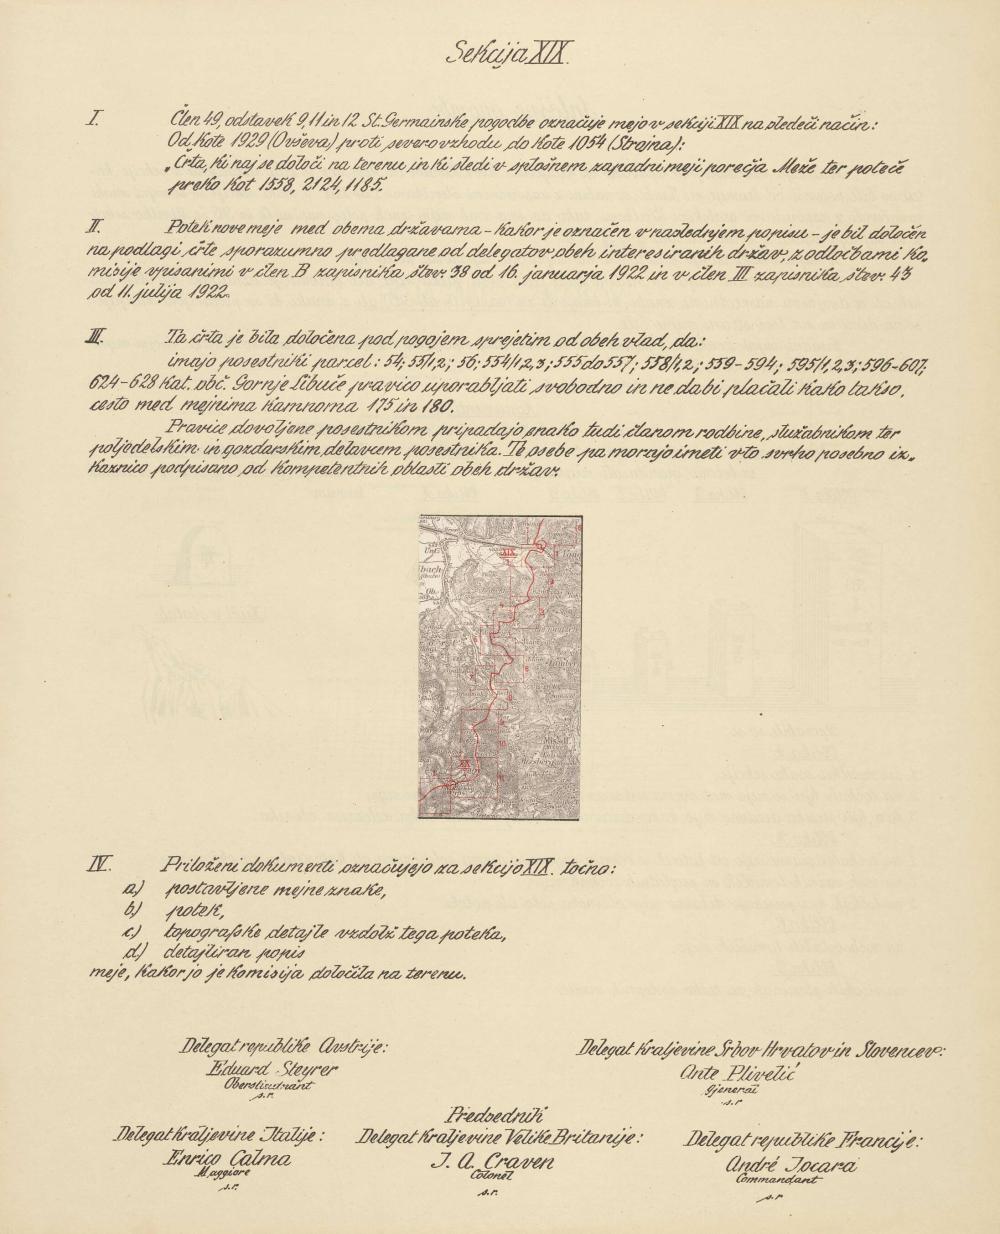 Sekcija XIX.
I. Člen 49, odstavek 9, 11 in 12 St. Germainske pogodbe označuje mejo v sekciji XIX na sledeči način:
Od Kote 1929 (Ovševa) proti severovzhodu do Kote 1054 (Strojna):
„Črta, ki naj se določi na terenu in ki sledi v splošnem zapadni meji porečja Meže ter poteče
preko kot 1558, 2124, 1185.
II. Potek nove meje med obema državama - kakor je označen v naslednjem popisu - je bil določen
na podlagi črte sporazumno predlagane od delegatov obeh interesiranih držav, z odločbami ko„
misije vpisanimi v člen B zapisnika štev. 38 od 16. januarja 1922 in v člen III zapisnika štev. 43
od 11. julija 1922.
III. Ta črta je bila določena pod pogojem sprejetim od obeh vlad, da:
imajo posestniki parcel: 54; 55/1,2; 56; 554/1,2,3; 555 do 557; 558/1,2; 559-594; 595/1,2,3; 596-607,
624-628 kat. obč. Gornje Libuče pravico uporabljati svobodno in ne da bi plačali kako takso,
cesto med mejnima kamnoma 175 in 180.
Pravice dovoljene posestnikom pripadajo enako tudi članom rodbine, služabnikom ter
poljedelskim in gozdarskim delavcem posestnika. Te osebe pa morajo imeti v to svrho posebno iz„
kaznico podpisano od kompetentnih oblasti obeh držav.
XIX
XX
IV. Priloženi dokumenti označujejo za sekcijo XIX. točno:
a.) postavljene mejne znake,
b.) potek,
c.) topografske detajle vzdolž tega poteka,
d.) detajliran popis
meje, kakor jo je komisija določila na terenu.
Delegat republike Avstrije: Delegat Kraljevine Srbov Hrvatov in Slovencev:
Eduard Steyrer Ante Plivelić
Oberstleutnant Gjeneral
s.r. s.r.
Predsednik
Delegat Kraljevine Italije: Delegat Kraljevine Velike Britanije: Delegat republike Francije:
Enrico Calma J. A. Craven André Jocard
Maggiore Colonel Commandant
s.r. s.r. s.r.